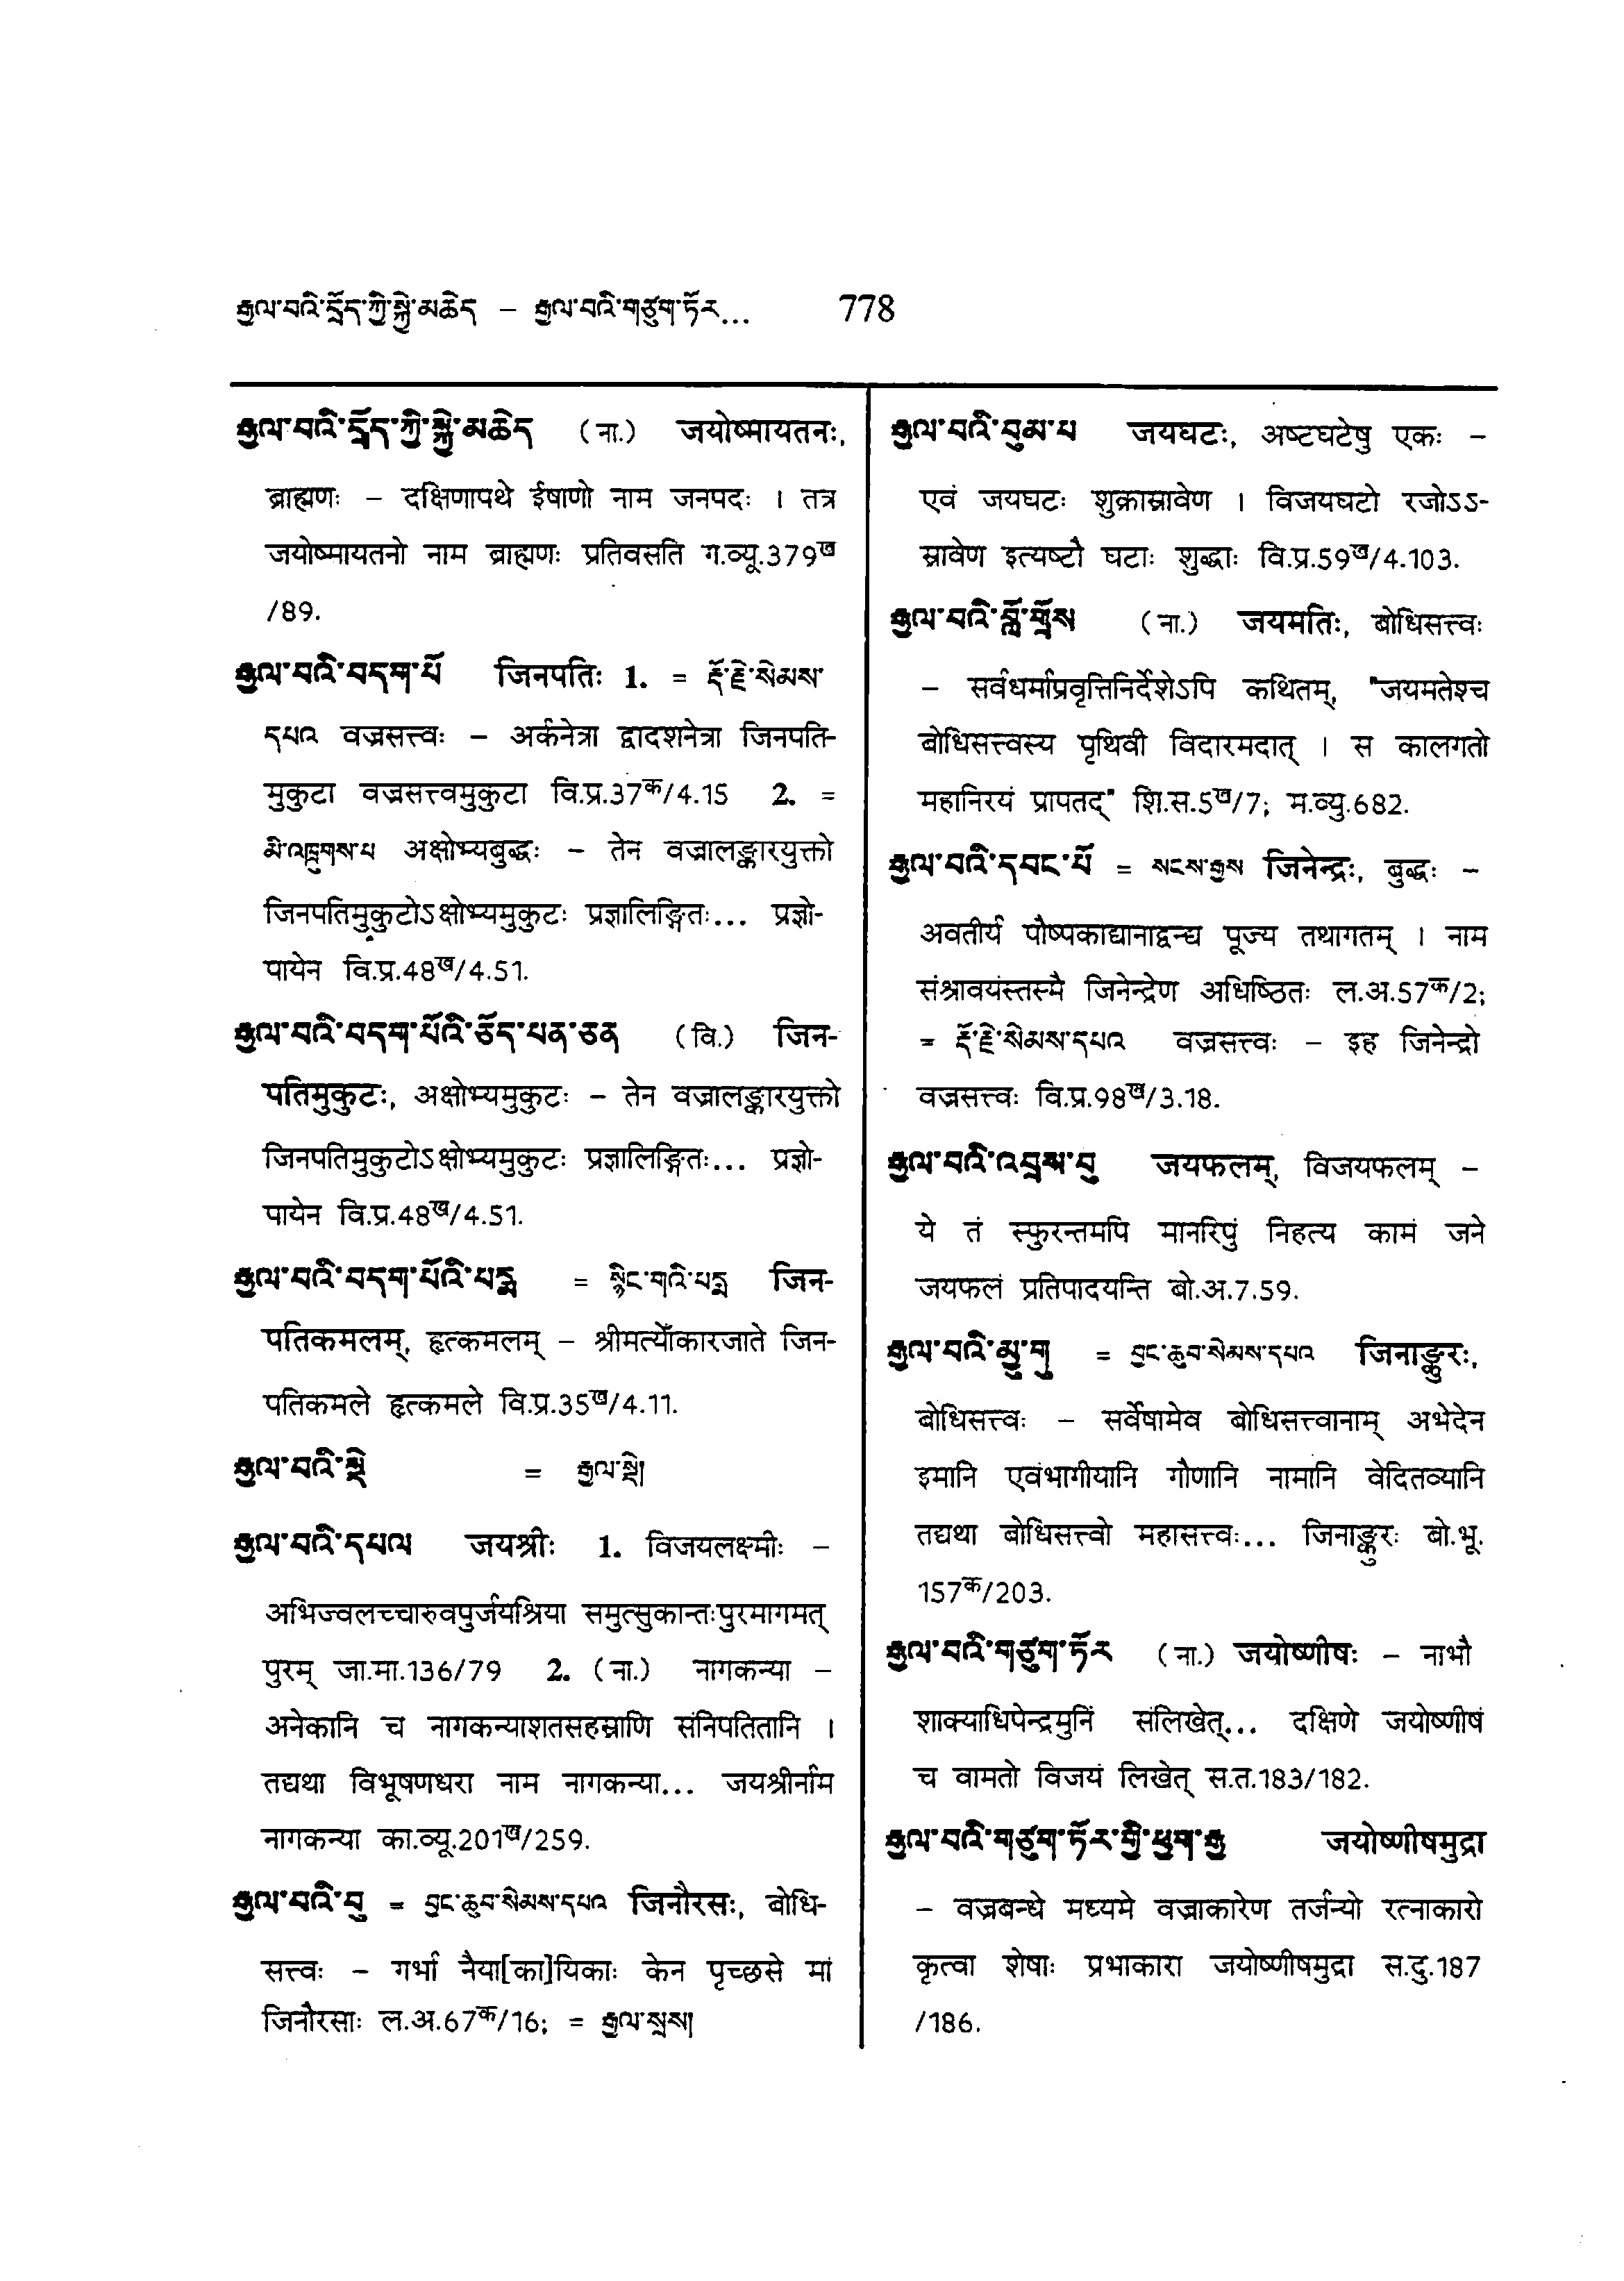 རྒྱལ་བའི་དྲོད་ཀྱི་སྐྱེ་མཆེད – རྒྱལ་བའི་གཙུག་ཏོར... 778
རྒྱལ་བའི་དྲོད་ཀྱི་སྐྱེ་མཆེད (ना.) जयोष्मायतनः,
ब्राह्मणः – दक्षिणापथे ईषाणो नाम जनपदः । तत्र
जयोष्मायतनो नाम ब्राह्मणः प्रतिवसति ग.व्यू.379ख
/89.
རྒྱལ་བའི་བདག་པོ जिनपतिः 1. = རྡོ་རྗེ་སེམས་
དཔའ वज्रसत्त्वः – अर्कनेत्रा द्वादशनेत्रा जिनपति-
मुकुटा वज्रसत्त्वमुकुटा वि.प्र.37क/4.15 2. =
མི་འཁྲུགས་པ अक्षोभ्यबुद्धः – तेन वज्रालङ्कारयुक्तो
जिनपतिमुकुटोऽक्षोभ्यमुकुटः प्रज्ञालिङ्गितः... प्रज्ञो-
पायेन वि.प्र.48ख/4.51.
རྒྱལ་བའི་བདག་པོའི་ཅོད་པན་ཅན (वि.) जिन-
पतिमुकुटः, अक्षोभ्यमुकुटः – तेन वज्रालङ्कारयुक्तो
जिनपतिमुकुटोऽक्षोभ्यमुकुटः प्रज्ञालिङ्गितः... प्रज्ञो-
पायेन वि.प्र.48ख/4.51.
རྒྱལ་བའི་བདག་པོའི་པདྨ = སྙིང་གའི་པདྨ जिन-
पतिकमलम्, हृत्कमलम् – श्रीमत्योँकारजाते जिन-
पतिकमले हृत्कमले वि.प्र.35ख/4.11.
རྒྱལ་བའི་སྡེ = རྒྱལ་སྡེ།
རྒྱལ་བའི་དཔལ जयश्रीः 1. विजयलक्ष्मीः –
अभिज्वलच्चारुवपुर्जयश्रिया समुत्सुकान्तःपुरमागमत्
पुरम् जा.मा.136/79 2. (ना.) नागकन्या –
अनेकानि च नागकन्याशतसहस्राणि संनिपतितानि ।
तद्यथा विभूषणधरा नाम नागकन्या... जयश्रीर्नाम
नागकन्या का.व्यू.201ख/259.
རྒྱལ་བའི་བུ = བྱང་ཆུབ་སེམས་དཔའ जिनौरसः, बोधि-
सत्त्वः – गर्भा नैया[का]यिकाः केन पृच्छसे मां
जिनौरसाः ल.अ.67क/16; = རྒྱལ་སྲས།
རྒྱལ་བའི་བུམ་པ जयघटः, अष्टघटेषु एकः –
एवं जयघटः शुक्रास्रावेण । विजयघटो रजोऽऽ-
स्रावेण इत्यष्टौ घटाः शुद्धाः वि.प्र.59ख/4.103.
རྒྱལ་བའི་བློ་གྲོས (ना.) जयमतिः, बोधिसत्त्वः
– सर्वधर्माप्रवृत्तिनिर्देशेऽपि कथितम्, "जयमतेश्च
बोधिसत्त्वस्य पृथिवी विदारमदात् । स कालगतो
महानिरयं प्रापतद्" शि.स.5ख/7; म.व्यु.682.
རྒྱལ་བའི་དབང་པོ = སངས་རྒྱས जिनेन्द्रः, बुद्धः –
अवतीर्य पौष्पकाद्यानाद्वन्द्य पूज्य तथागतम् । नाम
संश्रावयंस्तस्मै जिनेन्द्रेण अधिष्ठितः ल.अ.57क/2;
= རྡོ་རྗེ་སེམས་དཔའ वज्रसत्त्वः – इह जिनेन्द्रो
वज्रसत्त्वः वि.प्र.98ख/3.18.
རྒྱལ་བའི་འབྲས་བུ जयफलम्, विजयफलम् –
ये तं स्फुरन्तमपि मानरिपुं निहत्य कामं जने
जयफलं प्रतिपादयन्ति बो.अ.7.59.
རྒྱལ་བའི་མྱུ་གུ = བྱང་ཆུབ་སེམས་དཔའ जिनाङ्कुरः,
बोधिसत्त्वः – सर्वेषामेव बोधिसत्त्वानाम् अभेदेन
इमानि एवंभागीयानि गौणानि नामानि वेदितव्यानि
तद्यथा बोधिसत्त्वो महासत्त्वः... जिनाङ्कुरः बो.भू.
157क/203.
རྒྱལ་བའི་གཙུག་ཏོར (ना.) जयोष्णीषः – नाभौ
शाक्याधिपेन्द्रमुनिं संलिखेत्... दक्षिणे जयोष्णीषं
च वामतो विजयं लिखेत् स.त.183/182.
རྒྱལ་བའི་གཙུག་ཏོར་གྱི་ཕྱག་རྒྱ जयोष्णीषमुद्रा
– वज्रबन्धे मध्यमे वज्राकारेण तर्जन्यो रत्नाकारो
कृत्वा शेषाः प्रभाकारा जयोष्णीषमुद्रा स.दु.187
/186.